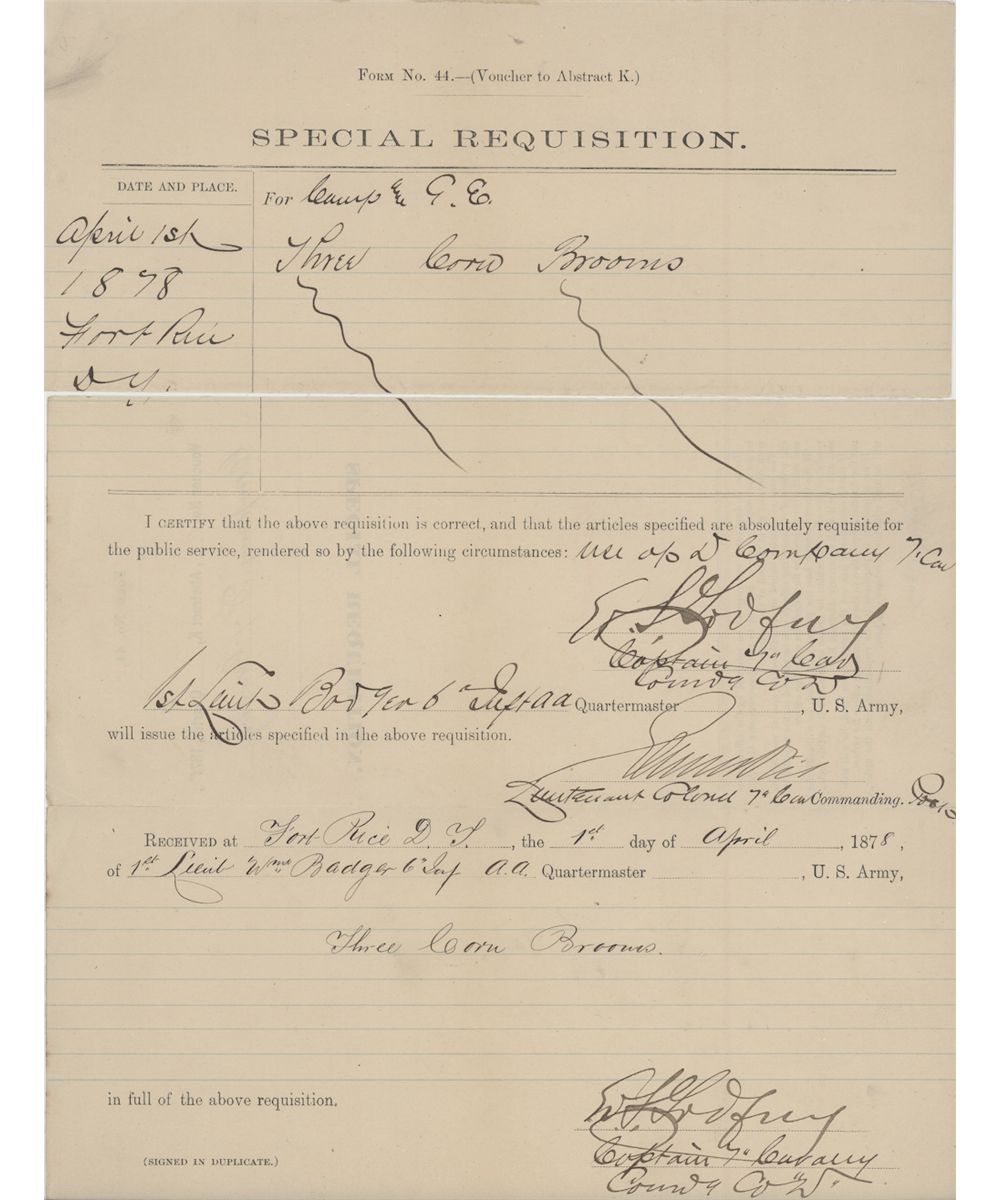 FORM No. 44.—(Voucher to Abstract K.)
SPECIAL REQUISITION.
DATE AND PLACE.
April 1st
1878
Fort Rice
D. T.
For Camp & G. E.
Three Corn Brooms
I CERTIFY that the above requisition is correct, and that the articles specified are absolutely requisite for
the public service, rendered so by the following circumstances: use of D Company 7. Cav
E. S. Godfrey
Captain 7" Cav
Comdg Co D
1st Lieut Badger 6" Inft aa Quartermaster , U. S. Army,
will issue the articles specified in the above requisition.
Lieutenant Colonel 7" Cav Commanding. Post
RECEIVED at Fort Rice D. T. , the 1st day of April , 1878 ,
of 1st Lieut Wm Badger 6" Inf A.A. Quartermaster , U. S. Army,
Three Corn Brooms.
in full of the above requisition.
E. S. Godfrey
Captain 7" Cavalry
Comdg Co "D"
(SIGNED IN DUPLICATE.)